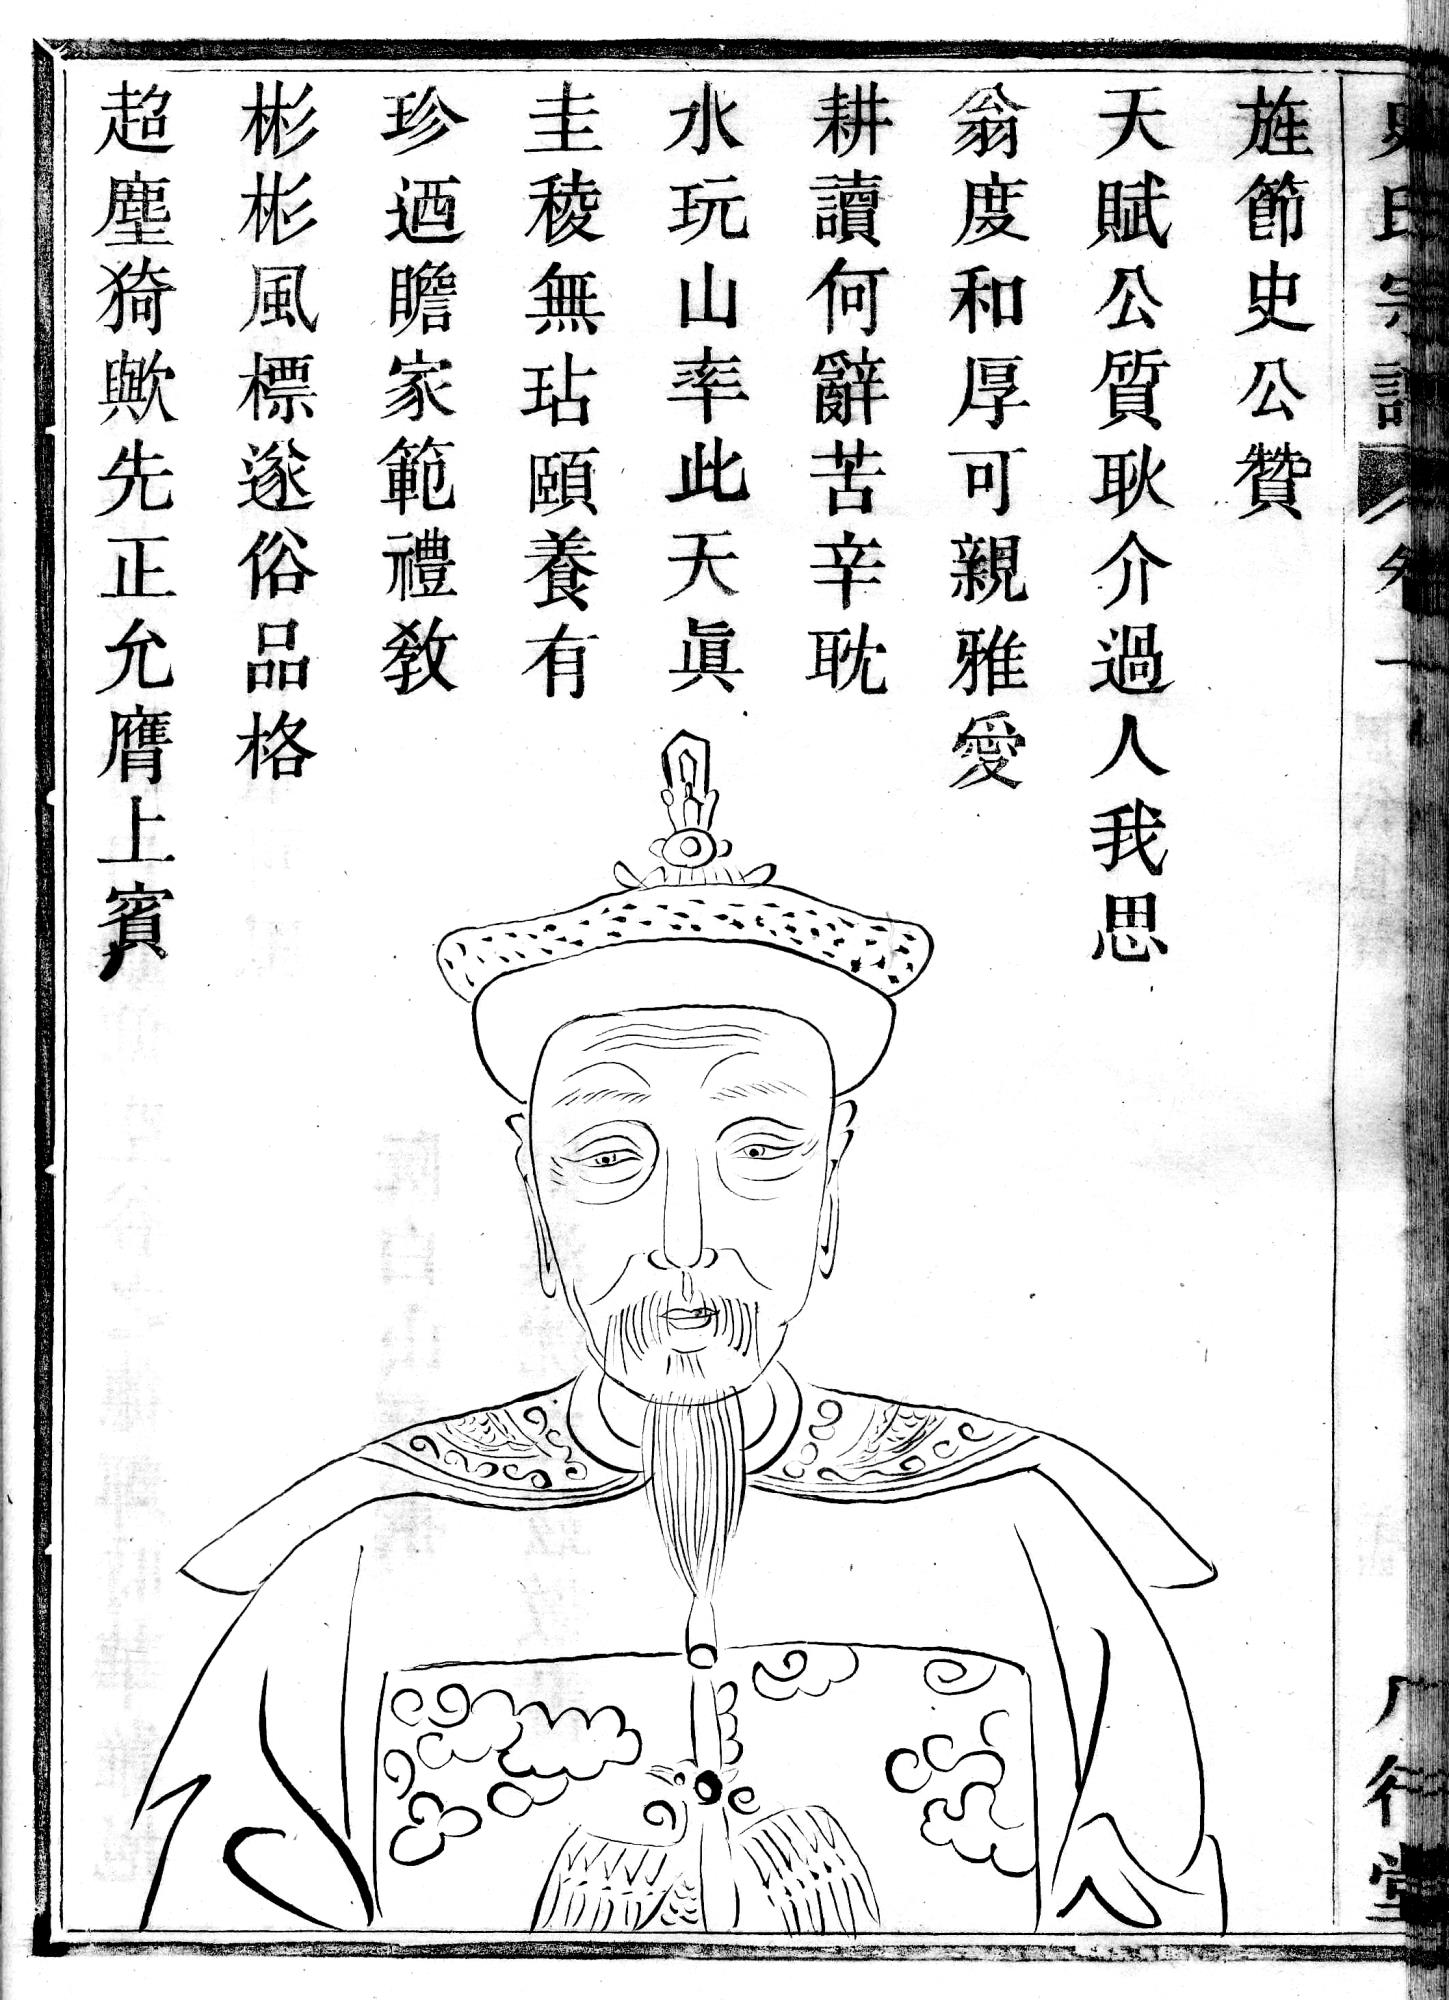 史氏宗譜 卷一 八行堂
旌節史公贊
天賦公質耿介過人我思
翁度和厚可親雅愛
耕讀何辭苦辛耽
水玩山率此天眞
圭稜無玷頤養有
珍迺瞻家範禮教
彬彬風標遂俗品格
超塵猗歟先正允膺上賓